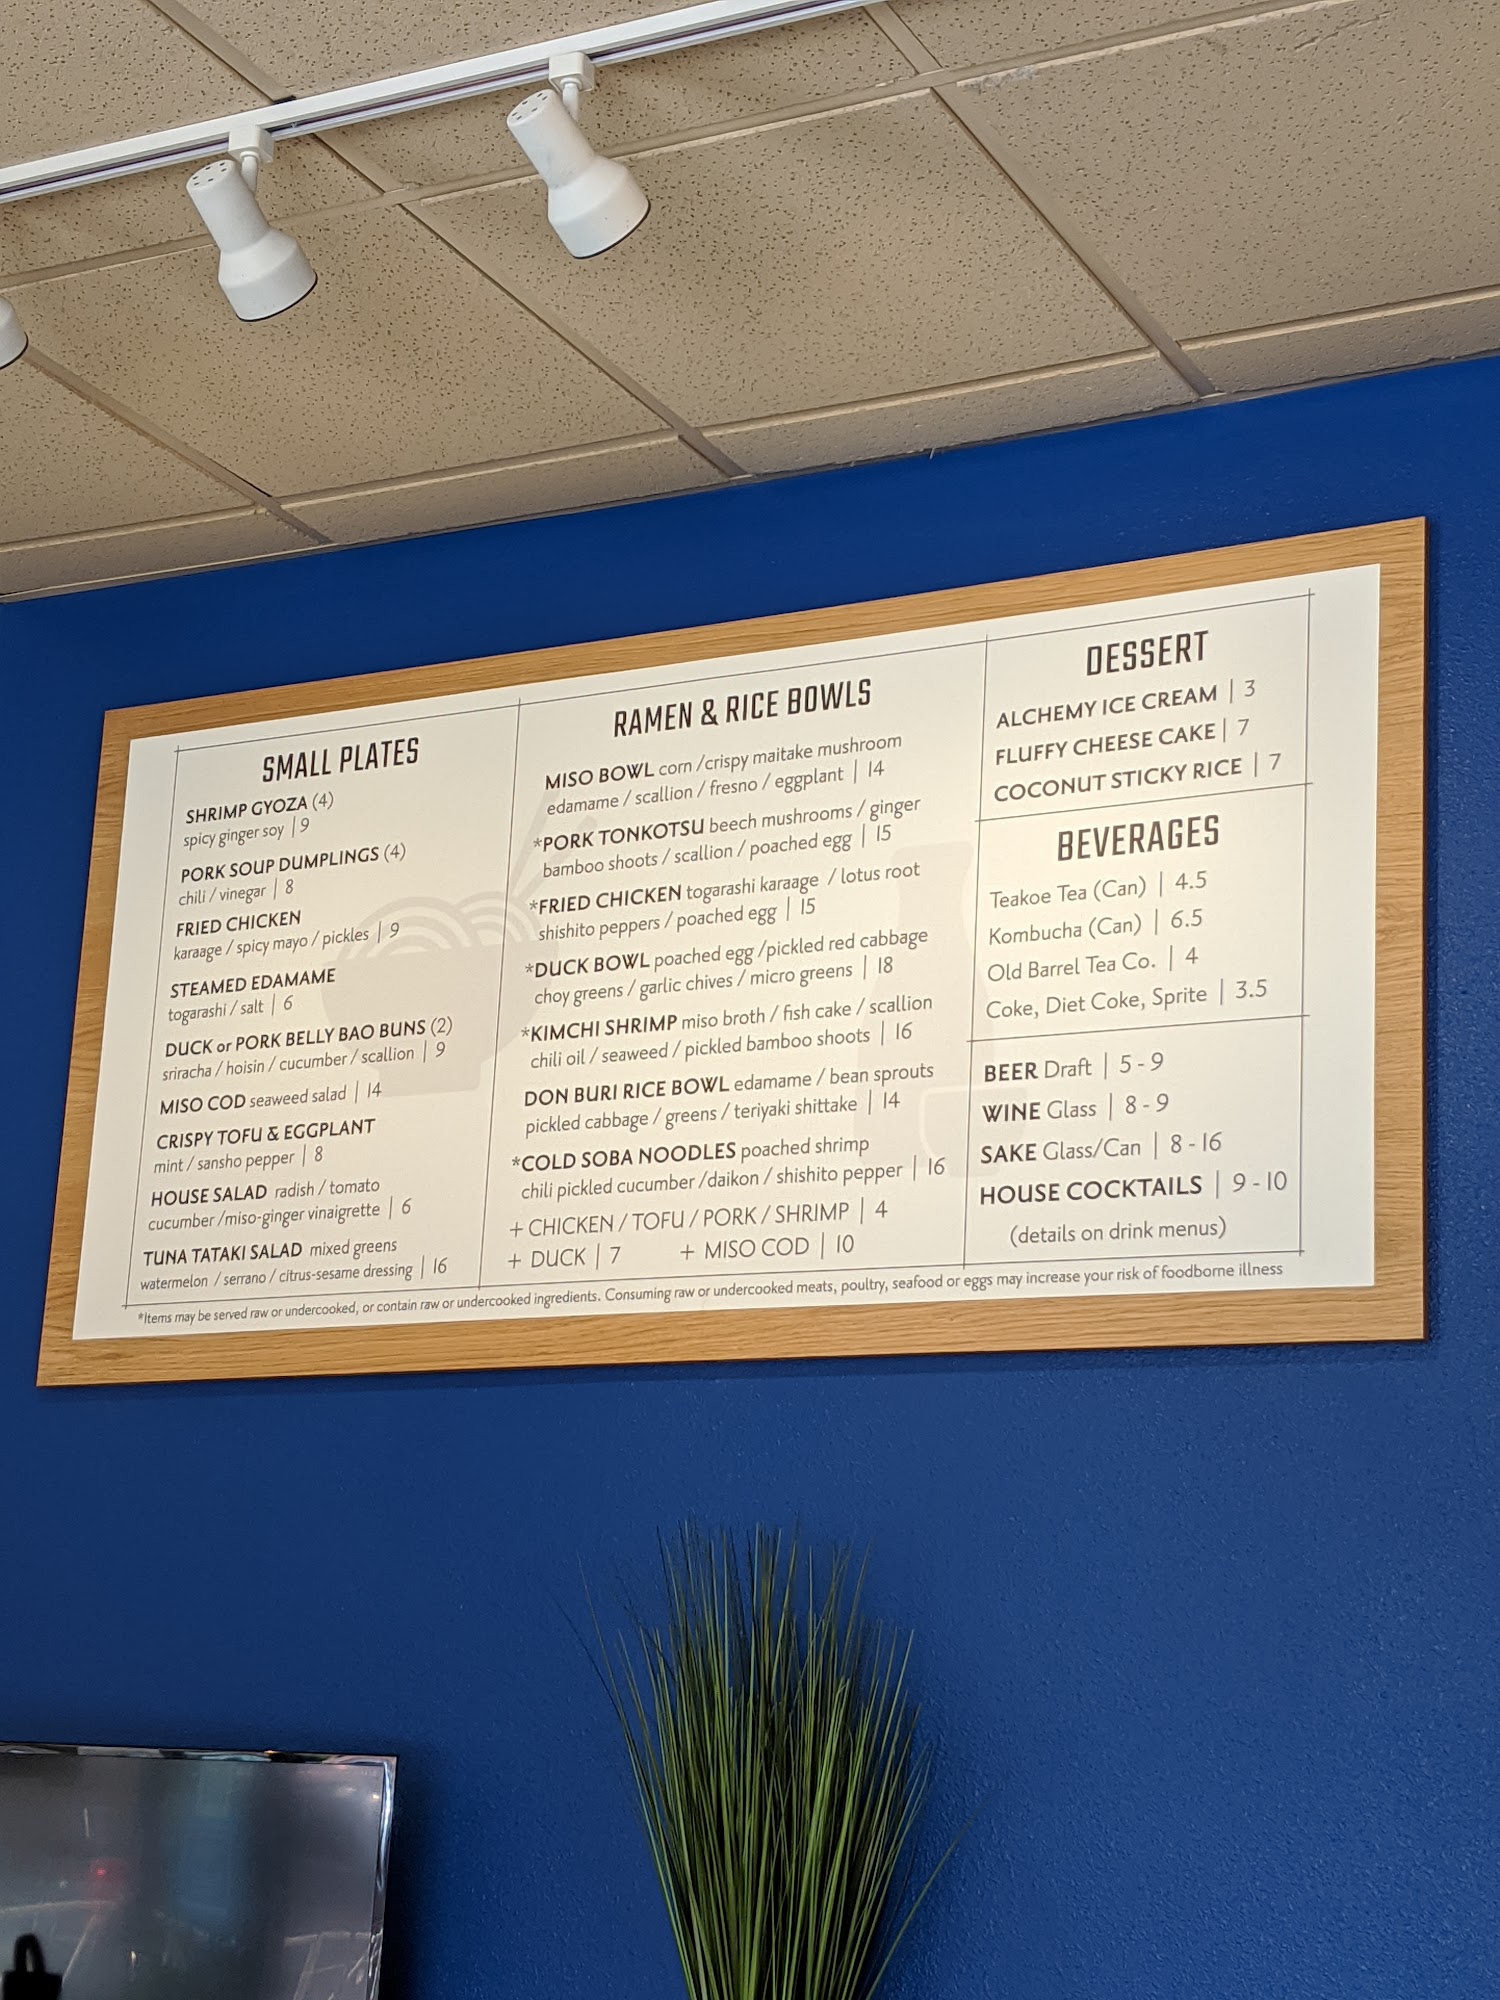 SMALL PLATES
SHRIMP GYOZA (4)
spicy ginger soy | 9
PORK SOUP DUMPLINGS (4)
chili / vinegar | 8
FRIED CHICKEN
karaage / spicy mayo / pickles | 9
STEAMED EDAMAME
togarashi / salt | 6
DUCK or PORK BELLY BAO BUNS (2)
sriracha / hoisin / cucumber / scallion | 9
MISO COD seaweed salad | 14
CRISPY TOFU & EGGPLANT
mint / sansho pepper | 8
HOUSE SALAD radish / tomato
cucumber /miso-ginger vinaigrette | 6
TUNA TATAKI SALAD mixed greens
watermelon / serrano / citrus-sesame dressing | 16
RAMEN & RICE BOWLS
MISO BOWL corn /crispy maitake mushroom
edamame / scallion / fresno / eggplant | 14
*PORK TONKOTSU beech mushrooms / ginger
bamboo shoots / scallion / poached egg | 15
*FRIED CHICKEN togarashi karaage / lotus root
shishito peppers / poached egg | 15
*DUCK BOWL poached egg /pickled red cabbage
choy greens / garlic chives / micro greens | 18
*KIMCHI SHRIMP miso broth / fish cake / scallion
chili oil / seaweed / pickled bamboo shoots | 16
DON BURI RICE BOWL edamame / bean sprouts
pickled cabbage / greens / teriyaki shittake | 14
*COLD SOBA NOODLES poached shrimp
chili pickled cucumber /daikon / shishito pepper | 16
+ CHICKEN / TOFU / PORK / SHRIMP | 4
+ DUCK | 7 + MISO COD | 10
DESSERT
ALCHEMY ICE CREAM | 3
FLUFFY CHEESE CAKE | 7
COCONUT STICKY RICE | 7
BEVERAGES
Teakoe Tea (Can) | 4.5
Kombucha (Can) | 6.5
Old Barrel Tea Co. | 4
Coke, Diet Coke, Sprite | 3.5
BEER Draft | 5 - 9
WINE Glass | 8 - 9
SAKE Glass/Can | 8 - 16
HOUSE COCKTAILS | 9 - 10
(details on drink menus)
*Items may be served raw or undercooked, or contain raw or undercooked ingredients. Consuming raw or undercooked meats, poultry, seafood or eggs may increase your risk of foodborne illness